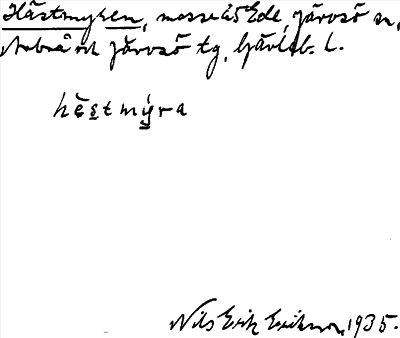 Hästmyren, mosse å Ede, Järvsö sn,
Arbrå och Järvsö tg, Gävleb. L.
hèstmýra
Nils Erik Erikson, 1935.